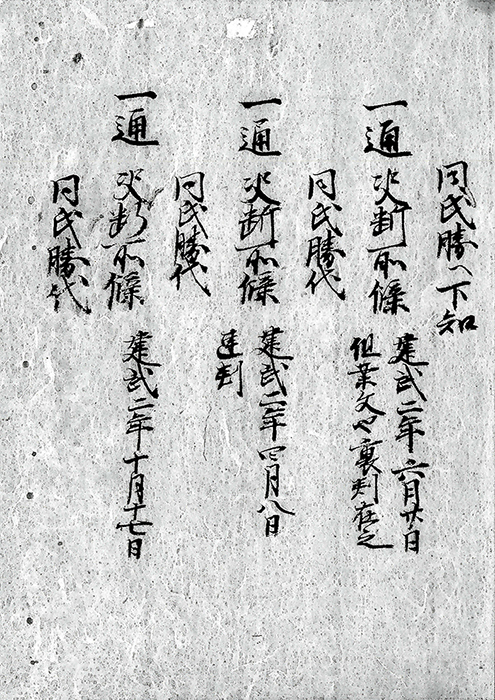 同氏勝へ下知
一通 决断所條 建武二年六月廿日
但案文也裏判在之
同氏勝代
一通 决断所條 建武二年四月八日
連判
同氏勝代
一通 决断所條 建武二年十月十七日
同氏勝代